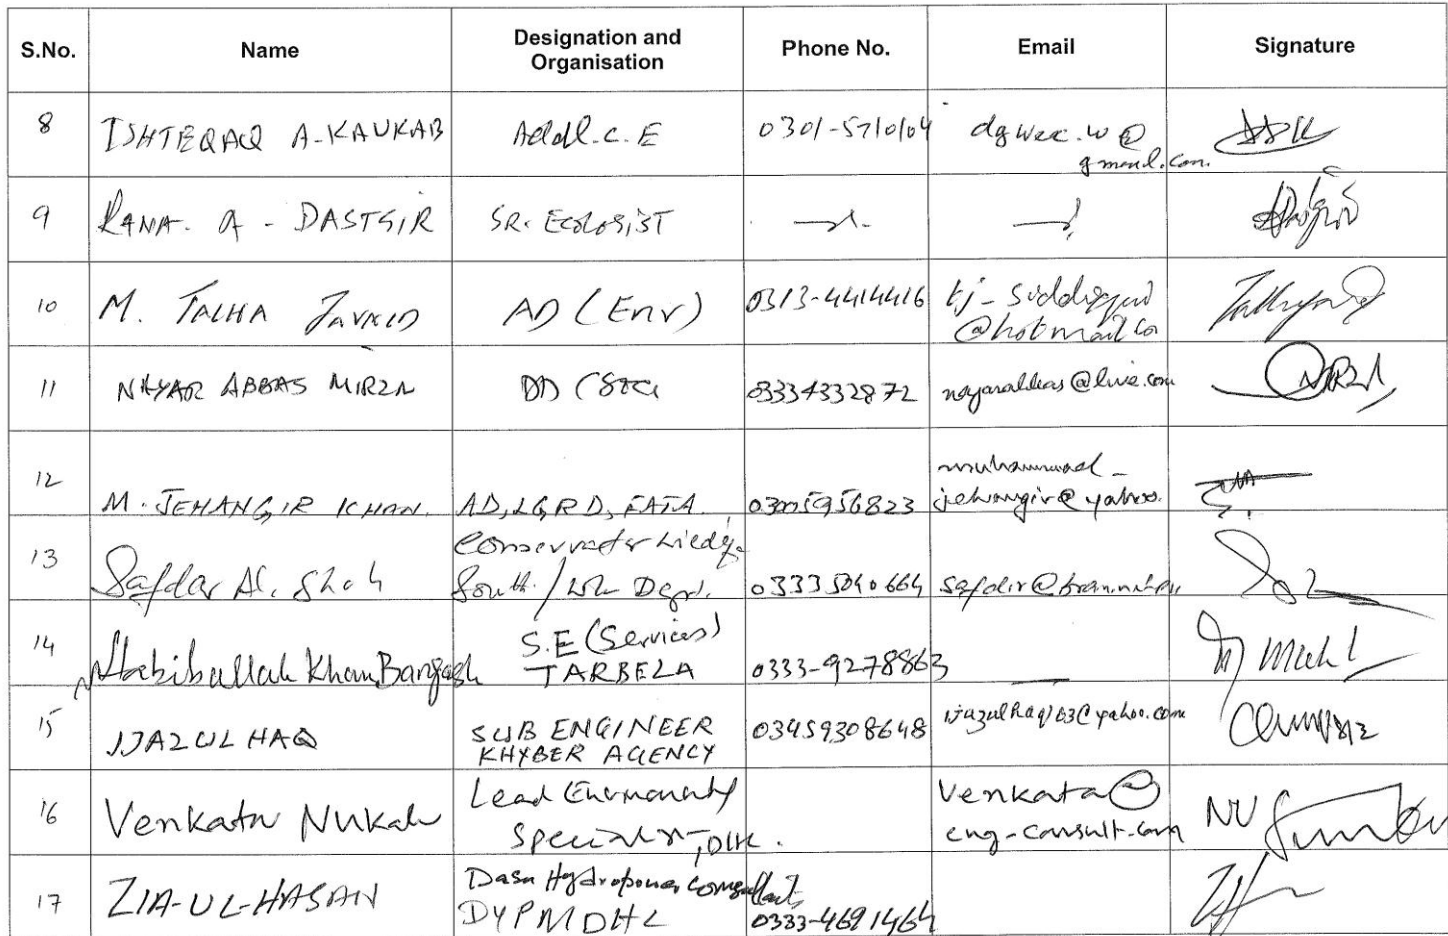 S.No. Name Designation and Organisation Phone No. Email Signature
8 ISHTEQAQ A-KAUKAB Addl. C. E 0301-5710104 dgwrc.w@
gmail.com.
9 RANA. A - DASTGIR SR. ECOLOGIST
10 M. TALHA JAVAID AD (Env) 0313-4414416 tj-siddiqui
@hotmail.co
11 NAYAR ABBAS MIRZA DD ( 03334332872 nayarabbas@live.com
12 muhammad_
M. JEHANGIR KHAN. AD, LG,RD, FATA. 03005956823 jehangir@yahoo.
13 Conservator
Safdar Al. Shah South. / Dept. 03335040664
14 S.E (Services)
Habibullah Khan Bangash TARBELA 0333-9278863
15 IJAZ UL HAQ SUB ENGINEER 03459308648 ijazulhaq163@yahoo.com
KHYBER AGENCY
16 Venkata Nukala Lead Environmental Venkata@ NU
Specialist, DHC. eng-consult.com
17 ZIA-UL-HASAN Dasu Hydropower Consultants
DYPM DHC 0333-4691464